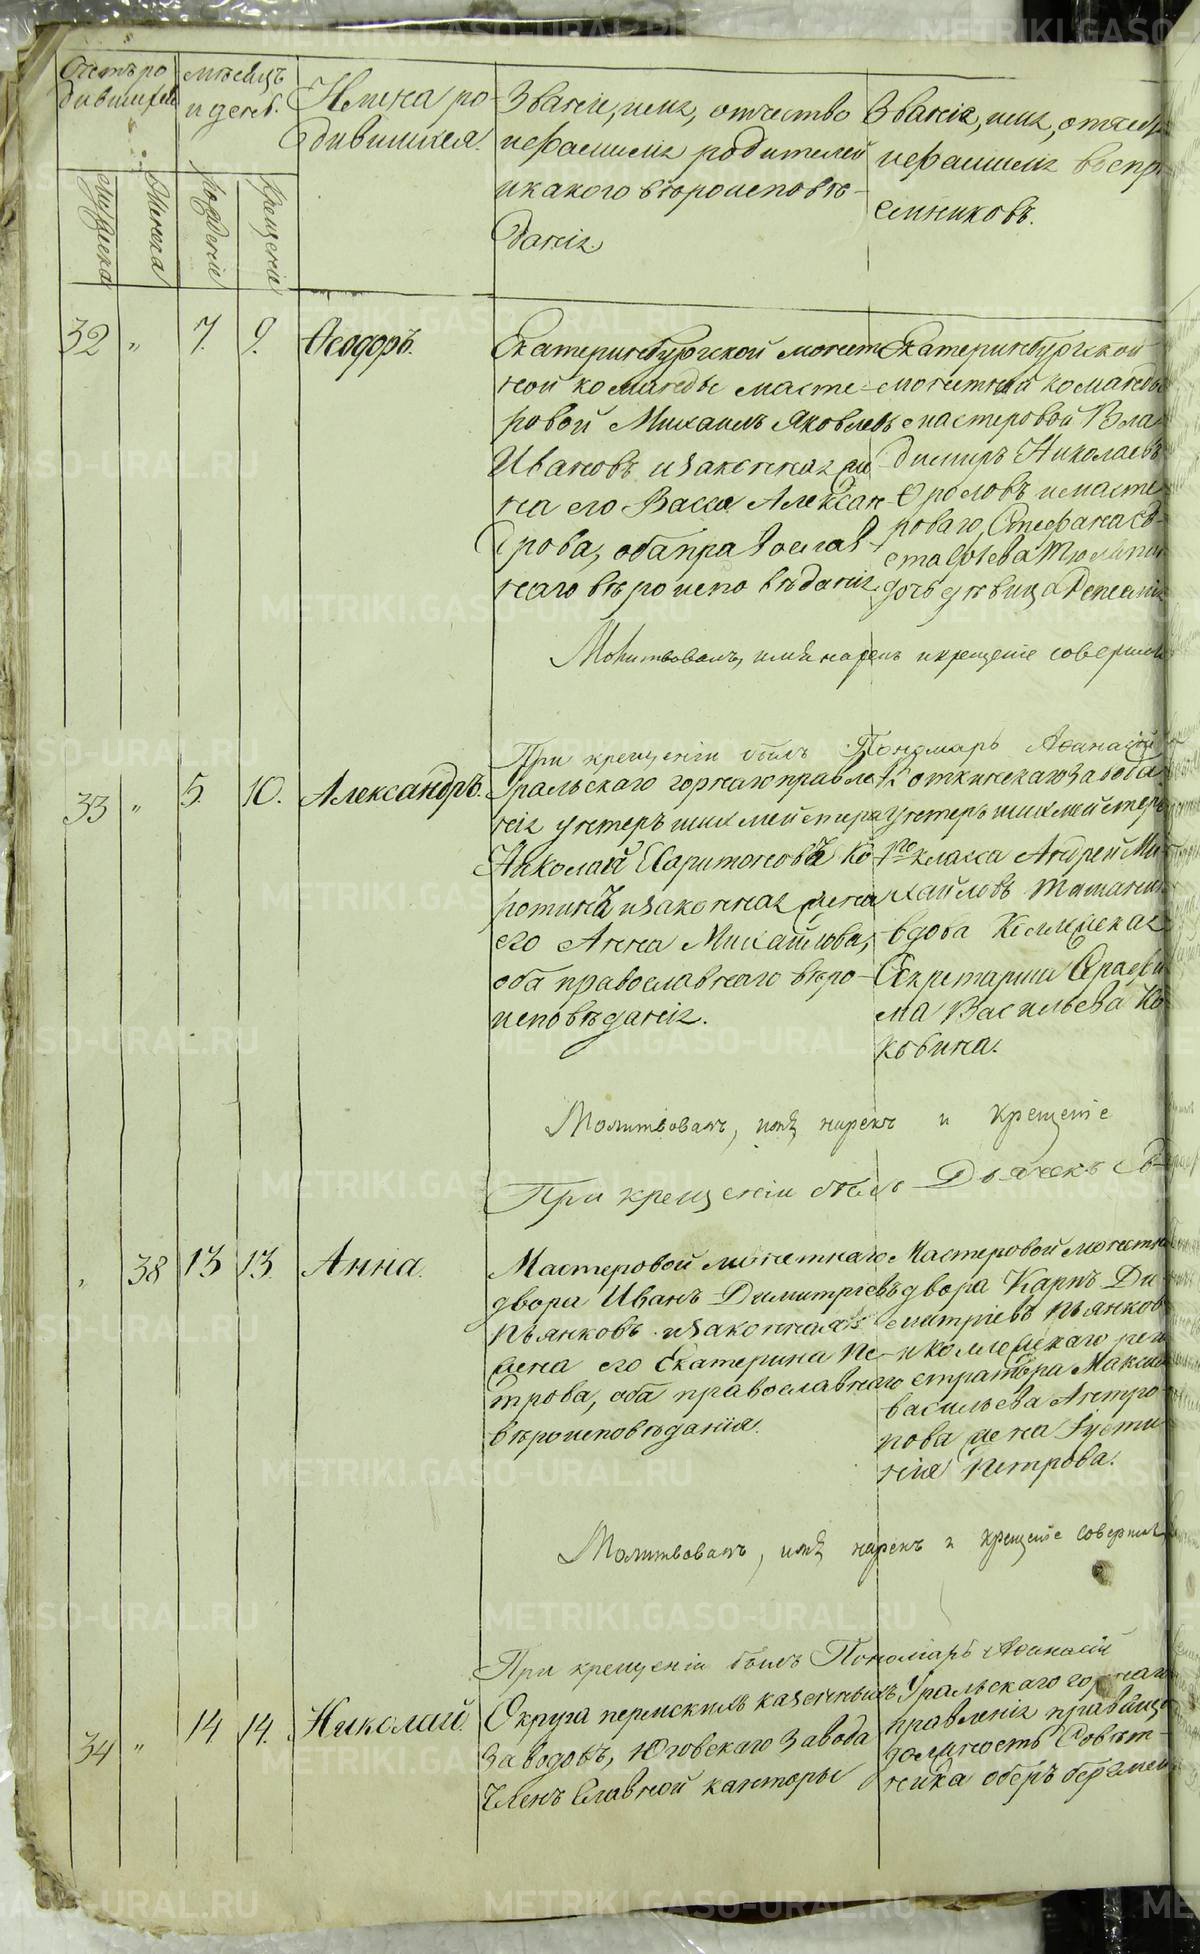 Счетъ ро
дившихся
мѣсяцъ
и день.
Имена ро
дившихся.
Званіе, имя, отчество
и фамилія родителей
и какого вѣроисповѣ-
данія.
Званіе, имя, отчест
и фамилія воспрі
емниковъ.
Мужеска
Женска
Рожденія
Крещенія
32 " 7. 9. Ѳеодоръ.
Екатеринбургской монет
ной команды масте-
ровой Михаилъ Яковлевъ
Ивановъ и законная же
на его Васса Алексан
дрова, оба православ-
наго вѣроисповѣданія.
Екатеринбургской
монетной команды
мастеровой Вла
димиръ Николаевъ
Фроловъ и масте
роваго, Стефана
дочь дѣвица
Молитвовалъ, имя нарекъ и крещеніе совершилъ
При крещеніи былъ Пономарь Аѳанасій
33 " 5. 10. Александръ.
Уральскаго горнаго правле
нія унтеръ шихмейстера
Николай Харитоновъ Ко
ротинъ и законная жена
его Анна Михайлова,
оба православнаго вѣро-
исповѣданія.
Воткинскаго завода
унтеръ шихмейстеръ
го класса Андрей Ми
хайловъ
вдова Коллежская
Секретарша Серафи
ма Васильева Ко
ковина.
Молитвовалъ, имя нарекъ и крещеніе
При крещеніи былъ Дьячекъ
38 13 13. Анна.
Мастеровой монетнаго
двора Иванъ Димитріевъ
Пьянковъ и законная
жена его Екатерина Пе-
трова, оба православнаго
вѣроисповѣданія.
Мастеровой монетна
двора Карпъ Ди
митріевъ Пьянков
и коллежскаго реги
стратора Максим
васильева Антро
пова жена Іусти
нія Петрова.
Молитвовалъ, имя нарекъ и крещеніе совершилъ
При крещеніи былъ Пономарь Аѳанасій
34 " 14 14. Николай.
Округа пермскихъ казенныхъ
заводовъ, Юговскаго завода
Членъ Главной канторы
Уральскаго горнаго
правленія правящ
должность Совѣт-
ника оберъ бергмей
METRIKI.GASO-URAL.RU